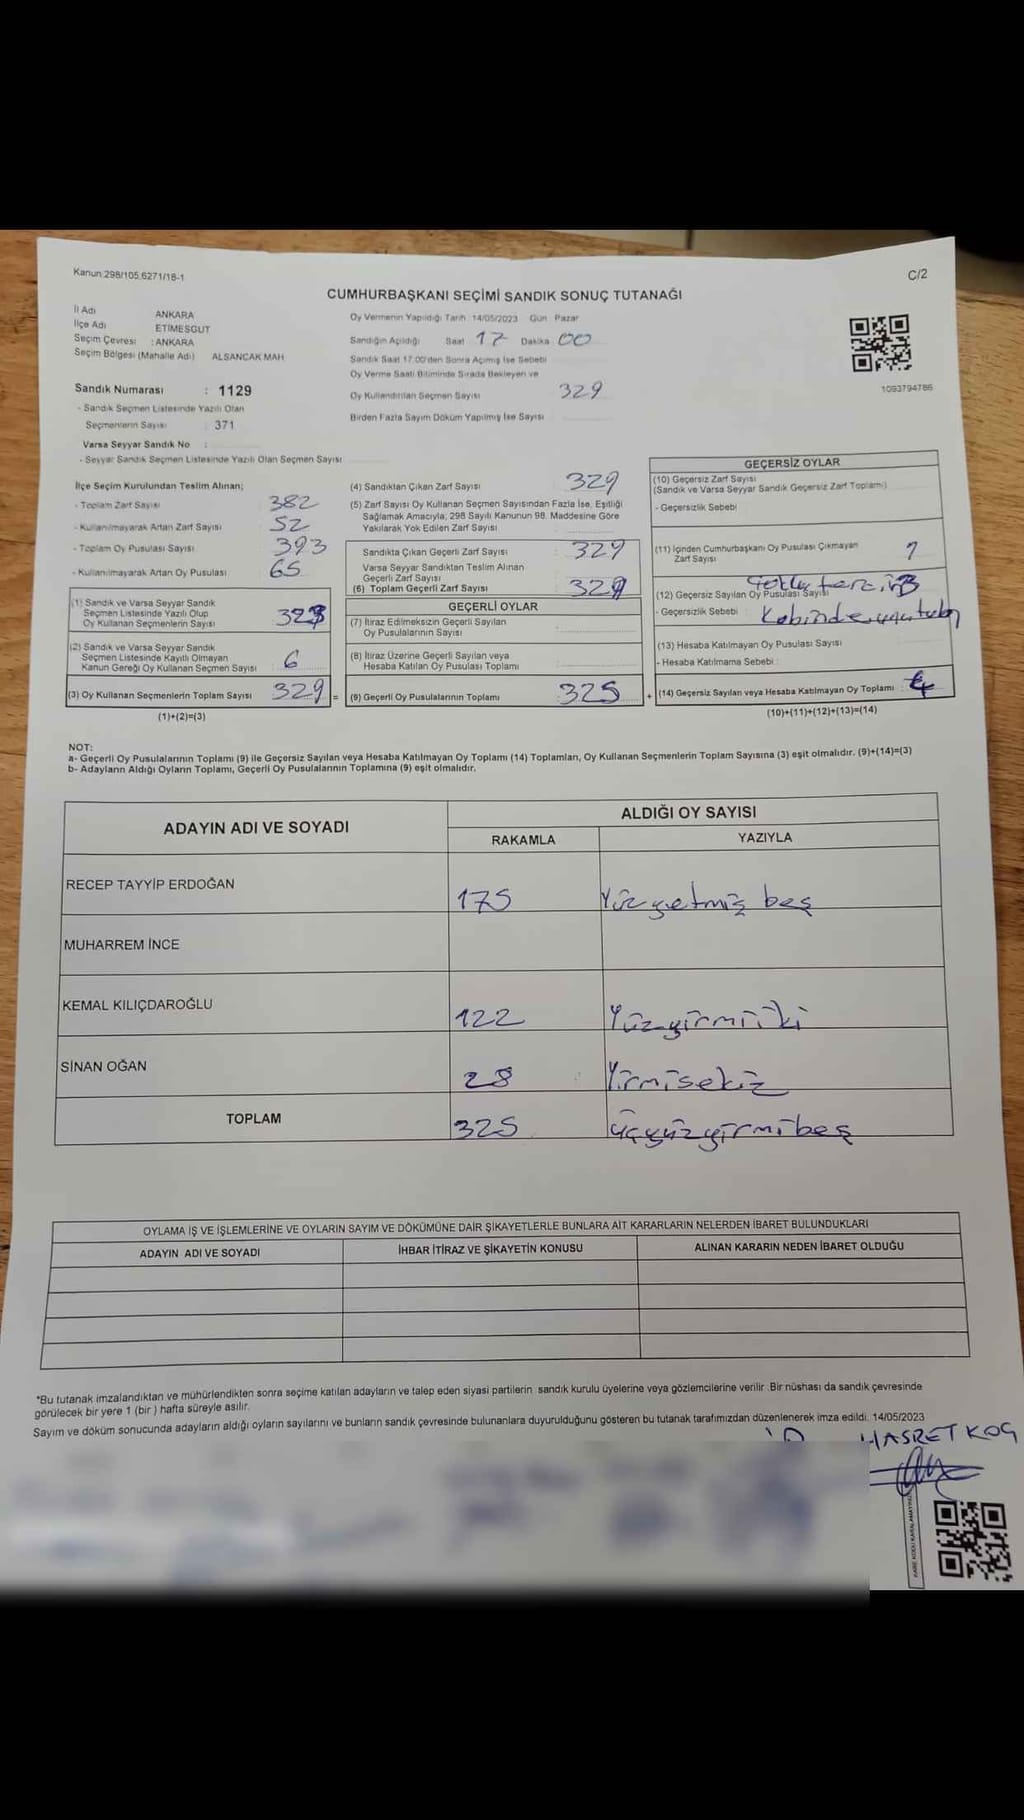 Kanun:298/105,6271/18-1
C/2
CUMHURBAŞKANI SEÇİMİ SANDIK SONUÇ TUTANAĞI
İl Adı ANKARA
İlçe Adı ETİMESGUT
Seçim Çevresi : ANKARA
Seçim Bölgesi (Mahalle Adı) ALSANCAK MAH
Sandık Numarası : 1129
- Sandık Seçmen Listesinde Yazılı Olan
Seçmenlerin Sayısı : 371
Varsa Seyyar Sandık No :
- Seyyar Sandık Seçmen Listesinde Yazılı Olan Seçmen Sayısı
Oy Vermenin Yapıldığı Tarih 14/05/2023 Gün Pazar
Sandığın Açıldığı Saat 17 Dakika 00
Sandık Saat 17:00'den Sonra Açılmış İse Sebebi
Oy Verme Saati Bitiminde Sırada Bekleyen ve
Oy Kullandırılan Seçmen Sayısı 329
Birden Fazla Sayım Döküm Yapılmış İse Sayısı
1093794786
İlçe Seçim Kurulundan Teslim Alınan;
- Toplam Zarf Sayısı 382
- Kullanılmayarak Artan Zarf Sayısı 52
- Toplam Oy Pusulası Sayısı 393
- Kullanılmayarak Artan Oy Pusulası 65
(1) Sandık ve Varsa Seyyar Sandık
Seçmen Listesinde Yazılı Olup
Oy Kullanan Seçmenlerin Sayısı 323
(2) Sandık ve Varsa Seyyar Sandık
Seçmen Listesinde Kayıtlı Olmayan
Kanun Gereği Oy Kullanan Seçmen Sayısı 6
(3) Oy Kullanan Seçmenlerin Toplam Sayısı 329 =
(1)+(2)=(3)
(4) Sandıktan Çıkan Zarf Sayısı 329
(5) Zarf Sayısı Oy Kullanan Seçmen Sayısından Fazla İse, Eşitliği
Sağlamak Amacıyla; 298 Sayılı Kanunun 98. Maddesine Göre
Yakılarak Yok Edilen Zarf Sayısı
Sandıkta Çıkan Geçerli Zarf Sayısı 329
Varsa Seyyar Sandıktan Teslim Alınan
Geçerli Zarf Sayısı
(6) Toplam Geçerli Zarf Sayısı 329
GEÇERLİ OYLAR
(7) İtiraz Edilmeksizin Geçerli Sayılan
Oy Pusulalarının Sayısı
(8) İtiraz Üzerine Geçerli Sayılan veya
Hesaba Katılan Oy Pusulası Toplamı
(9) Geçerli Oy Pusulalarının Toplamı 325 +
GEÇERSİZ OYLAR
(10) Geçersiz Zarf Sayısı
(Sandık ve Varsa Seyyar Sandık Geçersiz Zarf Toplamı)
- Geçersizlik Sebebi
(11) İçinden Cumhurbaşkanı Oy Pusulası Çıkmayan
Zarf Sayısı 1
(12) Geçersiz Sayılan Oy Pusulası Sayısı 3
- Geçersizlik Sebebi :
(13) Hesaba Katılmayan Oy Pusulası Sayısı
- Hesaba Katılmama Sebebi :
(14) Geçersiz Sayılan veya Hesaba Katılmayan Oy Toplamı : 4
(10)+(11)+(12)+(13)=(14)
NOT:
a- Geçerli Oy Pusulalarının Toplamı (9) ile Geçersiz Sayılan veya Hesaba Katılmayan Oy Toplamı (14) Toplamları, Oy Kullanan Seçmenlerin Toplam Sayısına (3) eşit olmalıdır. (9)+(14)=(3)
b- Adayların Aldığı Oyların Toplamı, Geçerli Oy Pusulalarının Toplamına (9) eşit olmalıdır.
ADAYIN ADI VE SOYADI ALDIĞI OY SAYISI
RAKAMLA YAZIYLA
RECEP TAYYİP ERDOĞAN 175 Yüzyetmiş beş
MUHARREM İNCE
KEMAL KILIÇDAROĞLU 122 Yüzyirmiiki
SİNAN OĞAN 28 Yirmisekiz
TOPLAM 325 üçyüzyirmibeş
OYLAMA İŞ VE İŞLEMLERİNE VE OYLARIN SAYIM VE DÖKÜMÜNE DAİR ŞİKAYETLERLE BUNLARA AİT KARARLARIN NELERDEN İBARET BULUNDUKLARI
ADAYIN ADI VE SOYADI İHBAR İTİRAZ VE ŞİKAYETİN KONUSU ALINAN KARARIN NEDEN İBARET OLDUĞU
*Bu tutanak imzalandıktan ve mühürlendikten sonra seçime katılan adayların ve talep eden siyasi partilerin sandık kurulu üyelerine veya gözlemcilerine verilir .Bir nüshası da sandık çevresinde
görülecek bir yere 1 (bir ) hafta süreyle asılır.
Sayım ve döküm sonucunda adayların aldığı oyların sayılarını ve bunların sandık çevresinde bulunanlara duyurulduğunu gösteren bu tutanak tarafımızdan düzenlenerek imza edildi. 14/05/2023
HASRET KOÇ